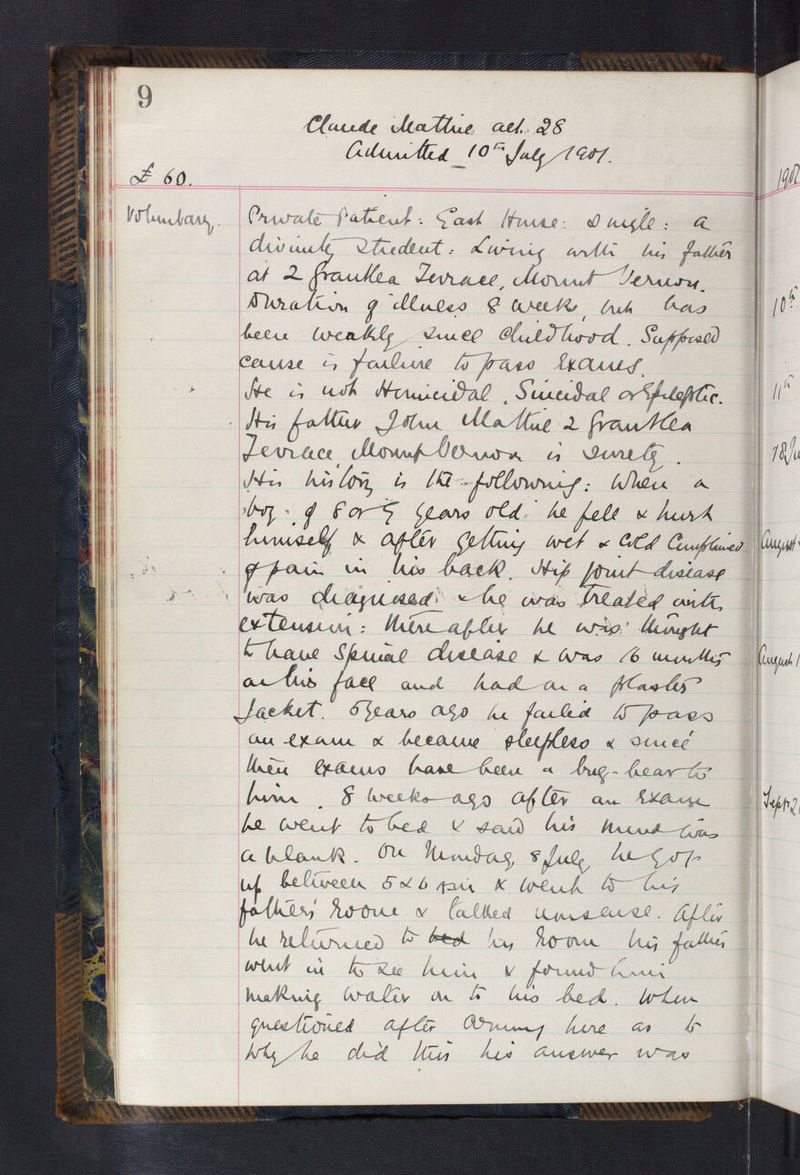 9
Claude Mattire aet. 28
Admitted 10th July 1901.
£ 60.
Voluntary.
Private Patient: East House: Single: a
divinity student: Living with his father
at 2 Terrace, Mount Vernon.
Duration of illness 8 weeks, but has
been weakly since childhood. Supposed
cause is failure to pass Exams.
He is not Homicidal, Suicidal or Epileptic.
His father John 2
Terrace Mount Vernon is surety.
His history is the following: When a
boy of 8 or 9 years old he fell & hurt
himself & after getting wet & cold Complained
of pain in his back. Hip joint disease
was diagnosed & he was treated with
extension: thereafter he was thought
to have Spinal disease & was 16 months
on his face and had on a plaster
Jacket. 5 years ago he failed to pass
an exam & became sleepless & since
then exams have been a bug-bear to
him. 8 weeks ago after an Exam
he went to bed & said his mind was
a blank. On Monday, 8 July he got
up between 5 & 6 & went to his
father's room & talked nonsense. After
he returned to bed his room his father
went in to see him & found him
making water on to his bed. When
questioned after coming here as to
why he did this his answer was
190
10th
11th
August
August 1
Sept 2